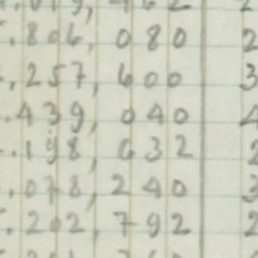 .806, 080 2
.257, 600 3
.439, 040 4
.198, 632 2
.078, 240 3
.202, 792 2